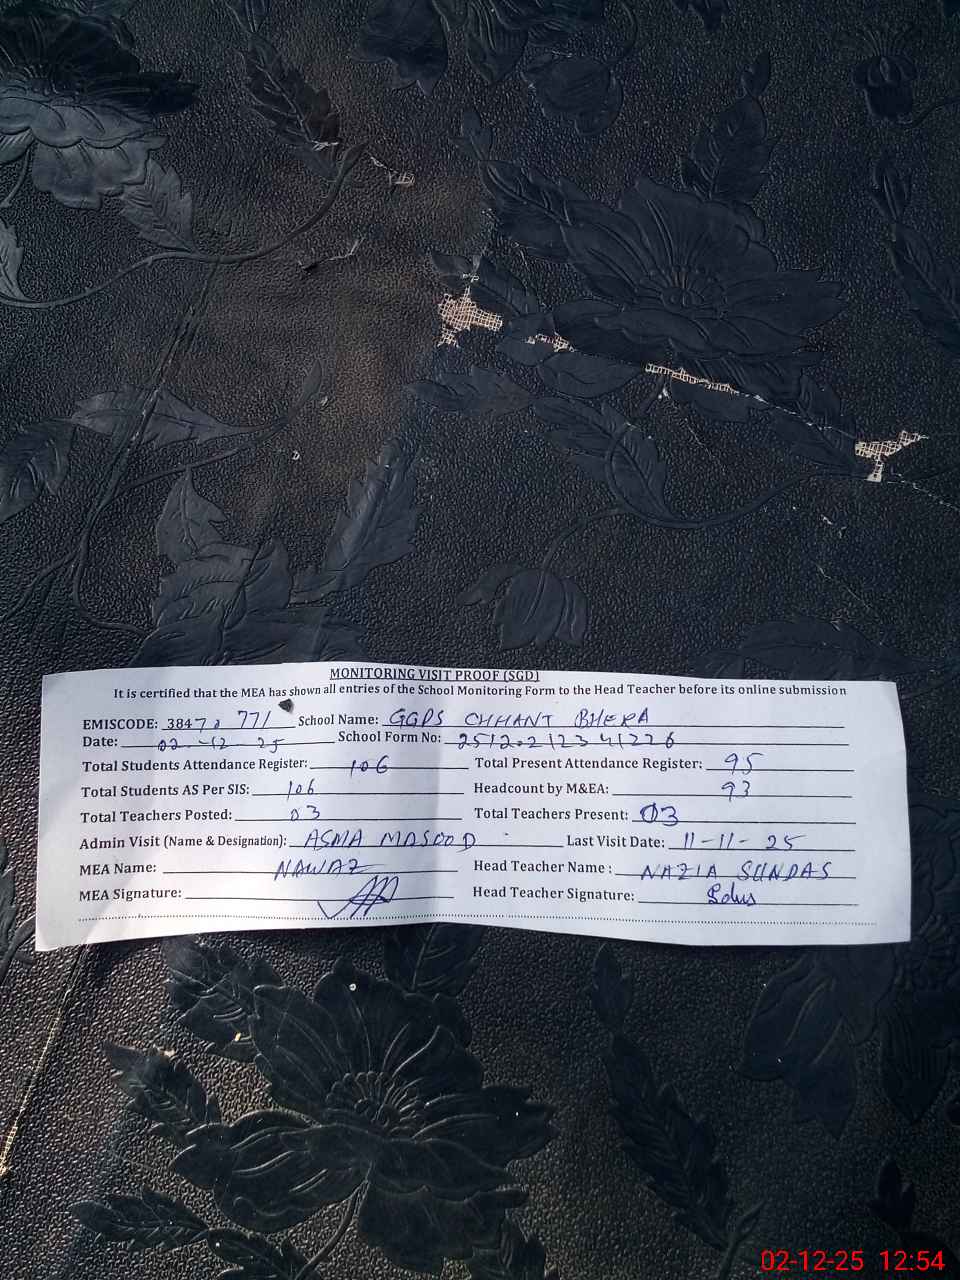 MONITORING VISIT PROOF (SGD)
It is certified that the MEA has shown all entries of the School Monitoring Form to the Head Teacher before its online submission
EMISCODE: 38470771 School Name: GGPS CHHANT BHERA
Date: 02-12-25 School Form No: 251202123441226
Total Students Attendance Register: 106 Total Present Attendance Register: 95
Total Students AS Per SIS: 106 Headcount by M&EA: 93
Total Teachers Posted: 03 Total Teachers Present: 03
Admin Visit (Name & Designation): ASMA MASOOD Last Visit Date: 11-11-25
MEA Name: NAWAZ Head Teacher Name : NAZIA SUNDAS
MEA Signature: Head Teacher Signature:
02-12-25 12:54